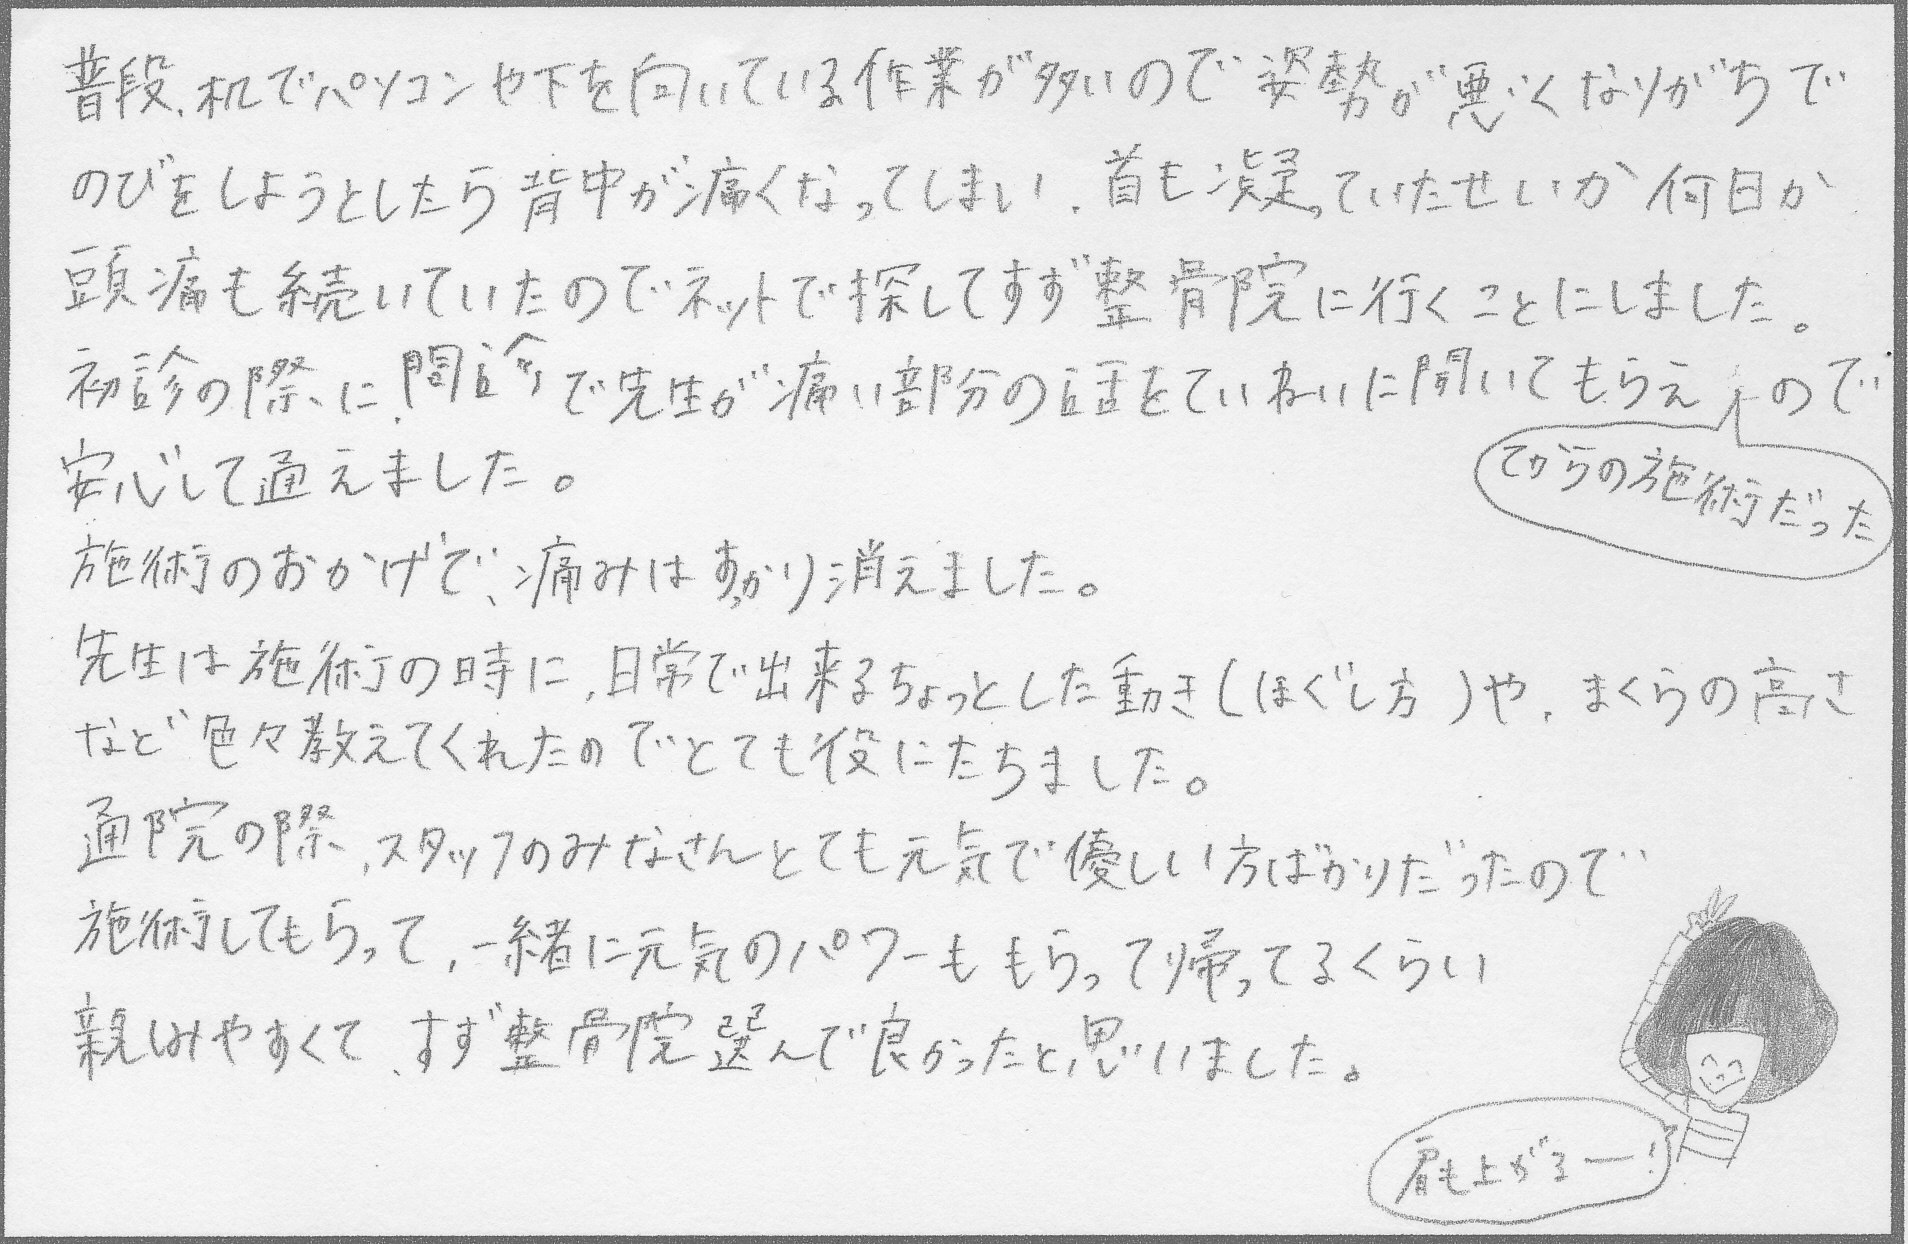 普段、机でパソコンや下を向いている作業が多いので姿勢が悪くなりがちで
のびをしようとしたら背中が痛くなってしまい、首も凝っていたせいか何日か
頭痛も続いていたのでネットで探してすず整骨院に行くことにしました。
初診の際に、問診で先生が痛い部分の話をていねいに聞いてもらえ
てからの施術だった
ので
安心して通えました。
施術のおかげで、痛みはすっかり消えました。
先生は施術の時に、日常で出来るちょっとした動き(ほぐし方)や、まくらの高さ
など色々教えてくれたのでとても役にたちました。
通院の際、スタッフのみなさんとても元気で優しい方ばかりだったので
施術してもらって、一緒に元気のパワーももらって帰ってるくらい
親しみやすくて、すず整骨院選んで良かったと思いました。
肩も上がるー!